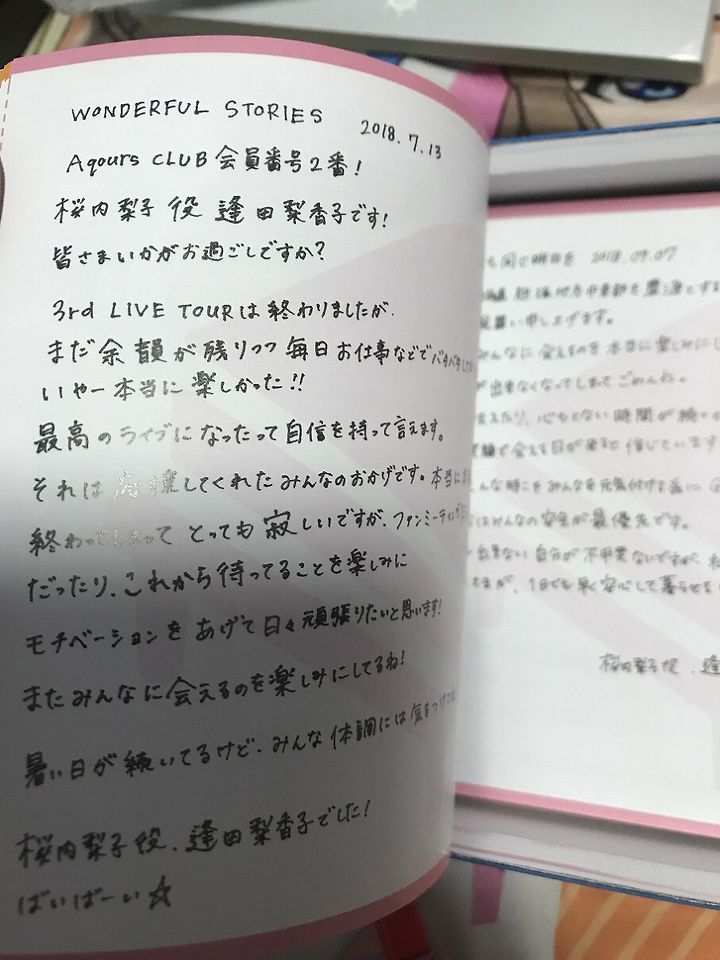 WONDERFUL STORIES
2018.7.13
Aqours CLUB 会員番号2番!
桜内梨子 役 逢田梨香子です!
皆さまいかがお過ごしですか?
3rd LIVE TOURは終わりましたが、
まだ余韻が残りつつ毎日お仕事などでバタバタ
いやー本当に楽しかった!!
最高のライブになったって自信を持って言えます。
それは応援してくれたみんなのおかげです。本当に
終わってしまって とっても寂しいですが、ファンミーティング
だったり、これから待ってることを楽しみに
モチベーションをあげて日々頑張りたいと思います!
またみんなに会えるのを楽しみにしてるね!
暑い日が続いてるけど、みんな体調には気をつけ
桜内梨子役、逢田梨香子でした!
ばいばーい☆
も同じ明日を 2018.09.07
胆振地方中東部を震源とする
見舞い申し上げます。
みんなに会えるのを本当に楽しみにし
が出来なくなってしまってごめんね。
心もとない時間が続
笑顔で会える日が来ると信じています
んな時こそみんなを元気付ける為に
はみんなの安全が最優先です。
出来ない自分が不甲斐ないですが、
が、1日でも早く安心して暮らせる
桜内梨子役、逢